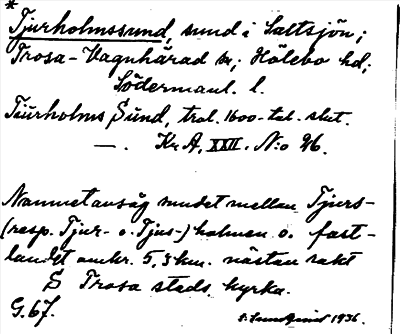 *
Tjurholmssund, sund i Saltsjön;
Trosa-Vagnhärad sn; Hölebo hd;
Södermanl. l.
Tiurholms Sund, trol. 1600-tal. slut.
—. Kr.A. XXII. N:o 26.
Namnet ansåg sundet mellan Tjurs-
(resp. Tjur- o. Tjus-) holmen o. fast-
landet omkr. 5,3 km. nästan rakt
S Trosa stads kyrka.
G. 67.
1936.